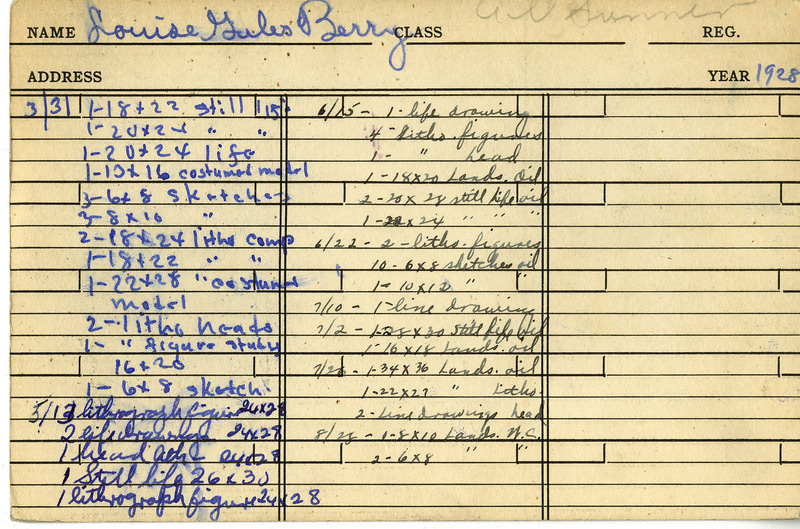 All Summer
NAME Louise Giles Berry CLASS REG.
ADDRESS YEAR 1928
3/31 1-18+22 still 15
1-20x24 " "
1-20x24 life
1-13x16 costumed model
3-6x8 sketches
3-8x10 "
2-18x24 litho comp
1-18+22 " "
1-22x28 " costumed
model
2-litho heads
1- " figure study
16x20
1-6x8 sketch
5/13 lithrograph figure 24x28
2 life drawings 24x28
1 head 24x28
1 Still life 26x30
1 lithrograph figure 24x28
6/15 - 1-life drawing
4-lithos. figures
1- " head
1-18x20 Lands. Oil
2-20x28 still life oil
1-20x24 " " "
6/22 - 2-litho. figures
10-6x8 sketches oil
1-10x12 " "
7/10 - 1-line drawing
7/2 - 1-28x30 still life oil
1-16x18 Lands. oil
7/26 - 1-34x36 Lands. oil
1-22x27 " litho.
2-line drawings head
8/28 - 1-8x10 Lands. W.C.
2-6x8 " "